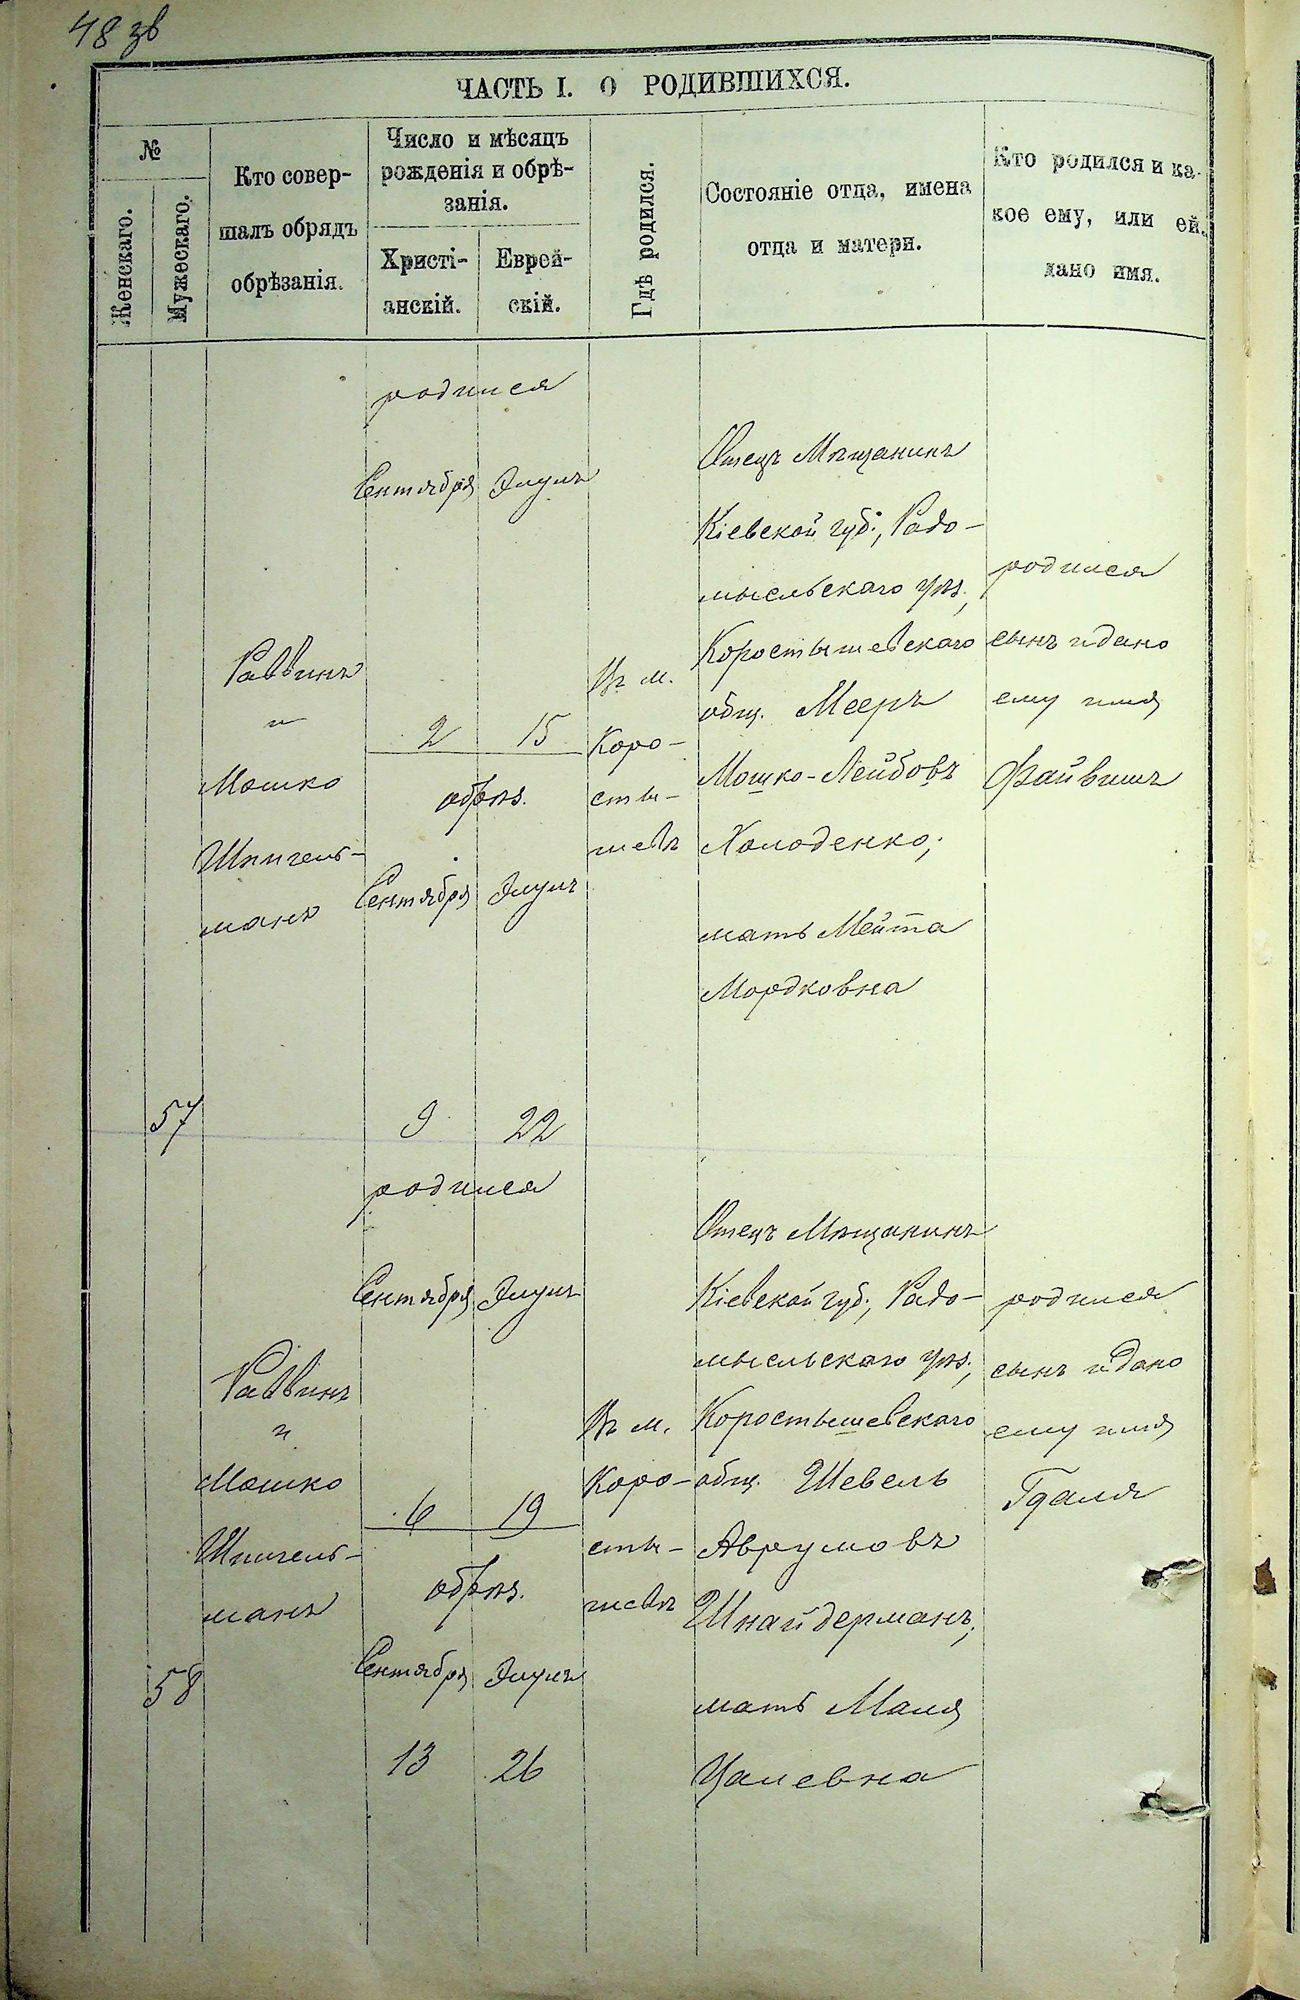 48 зв
ЧАСТЬ I. О РОДИВШИХСЯ.
№
Женскаго.
Мужескаго.
Кто совер-
шалъ обрядъ
обрѣзанія.
Число и мѣсяцъ
рожденія и обрѣ-
занія.
Христі-
анскій.
Еврей-
скій.
Гдѣ родился.
Состояніе отца, имена
отца и матери.
Кто родился и ка-
кое ему, или ей,
дано имя.
57
Раввинъ
и
Мошко
Шпигель-
манъ
родился
Сентября Элулъ
2 15
обрѣз.
Сентября Элулъ
9 22
Въ м.
Коро-
сты-
шевѣ
Отецъ Мѣщанинъ
Кіевской губ., Радо-
мысльскаго уѣз.,
Коростышевскаго
общ. Мееръ
Мошко-Лейбовъ
Холоденко;
мать Мейта
Мордковна
родился
сынъ и дано
ему имя
Файвишъ
58
Раввинъ
и
Мошко
Шпигель-
манъ
родился
Сентября Элулъ
6 19
обрѣз.
Сентября Элулъ
13 26
Въ м.
Коро-
сты-
шевѣ
Отецъ Мѣщанинъ
Кіевской губ., Радо-
мысльскаго уѣз.,
Коростышевскаго
общ. Шевель
Аврумовъ
Шнайдерманъ;
мать Маля
Цалевна
родился
сынъ и дано
ему имя
Гдаля